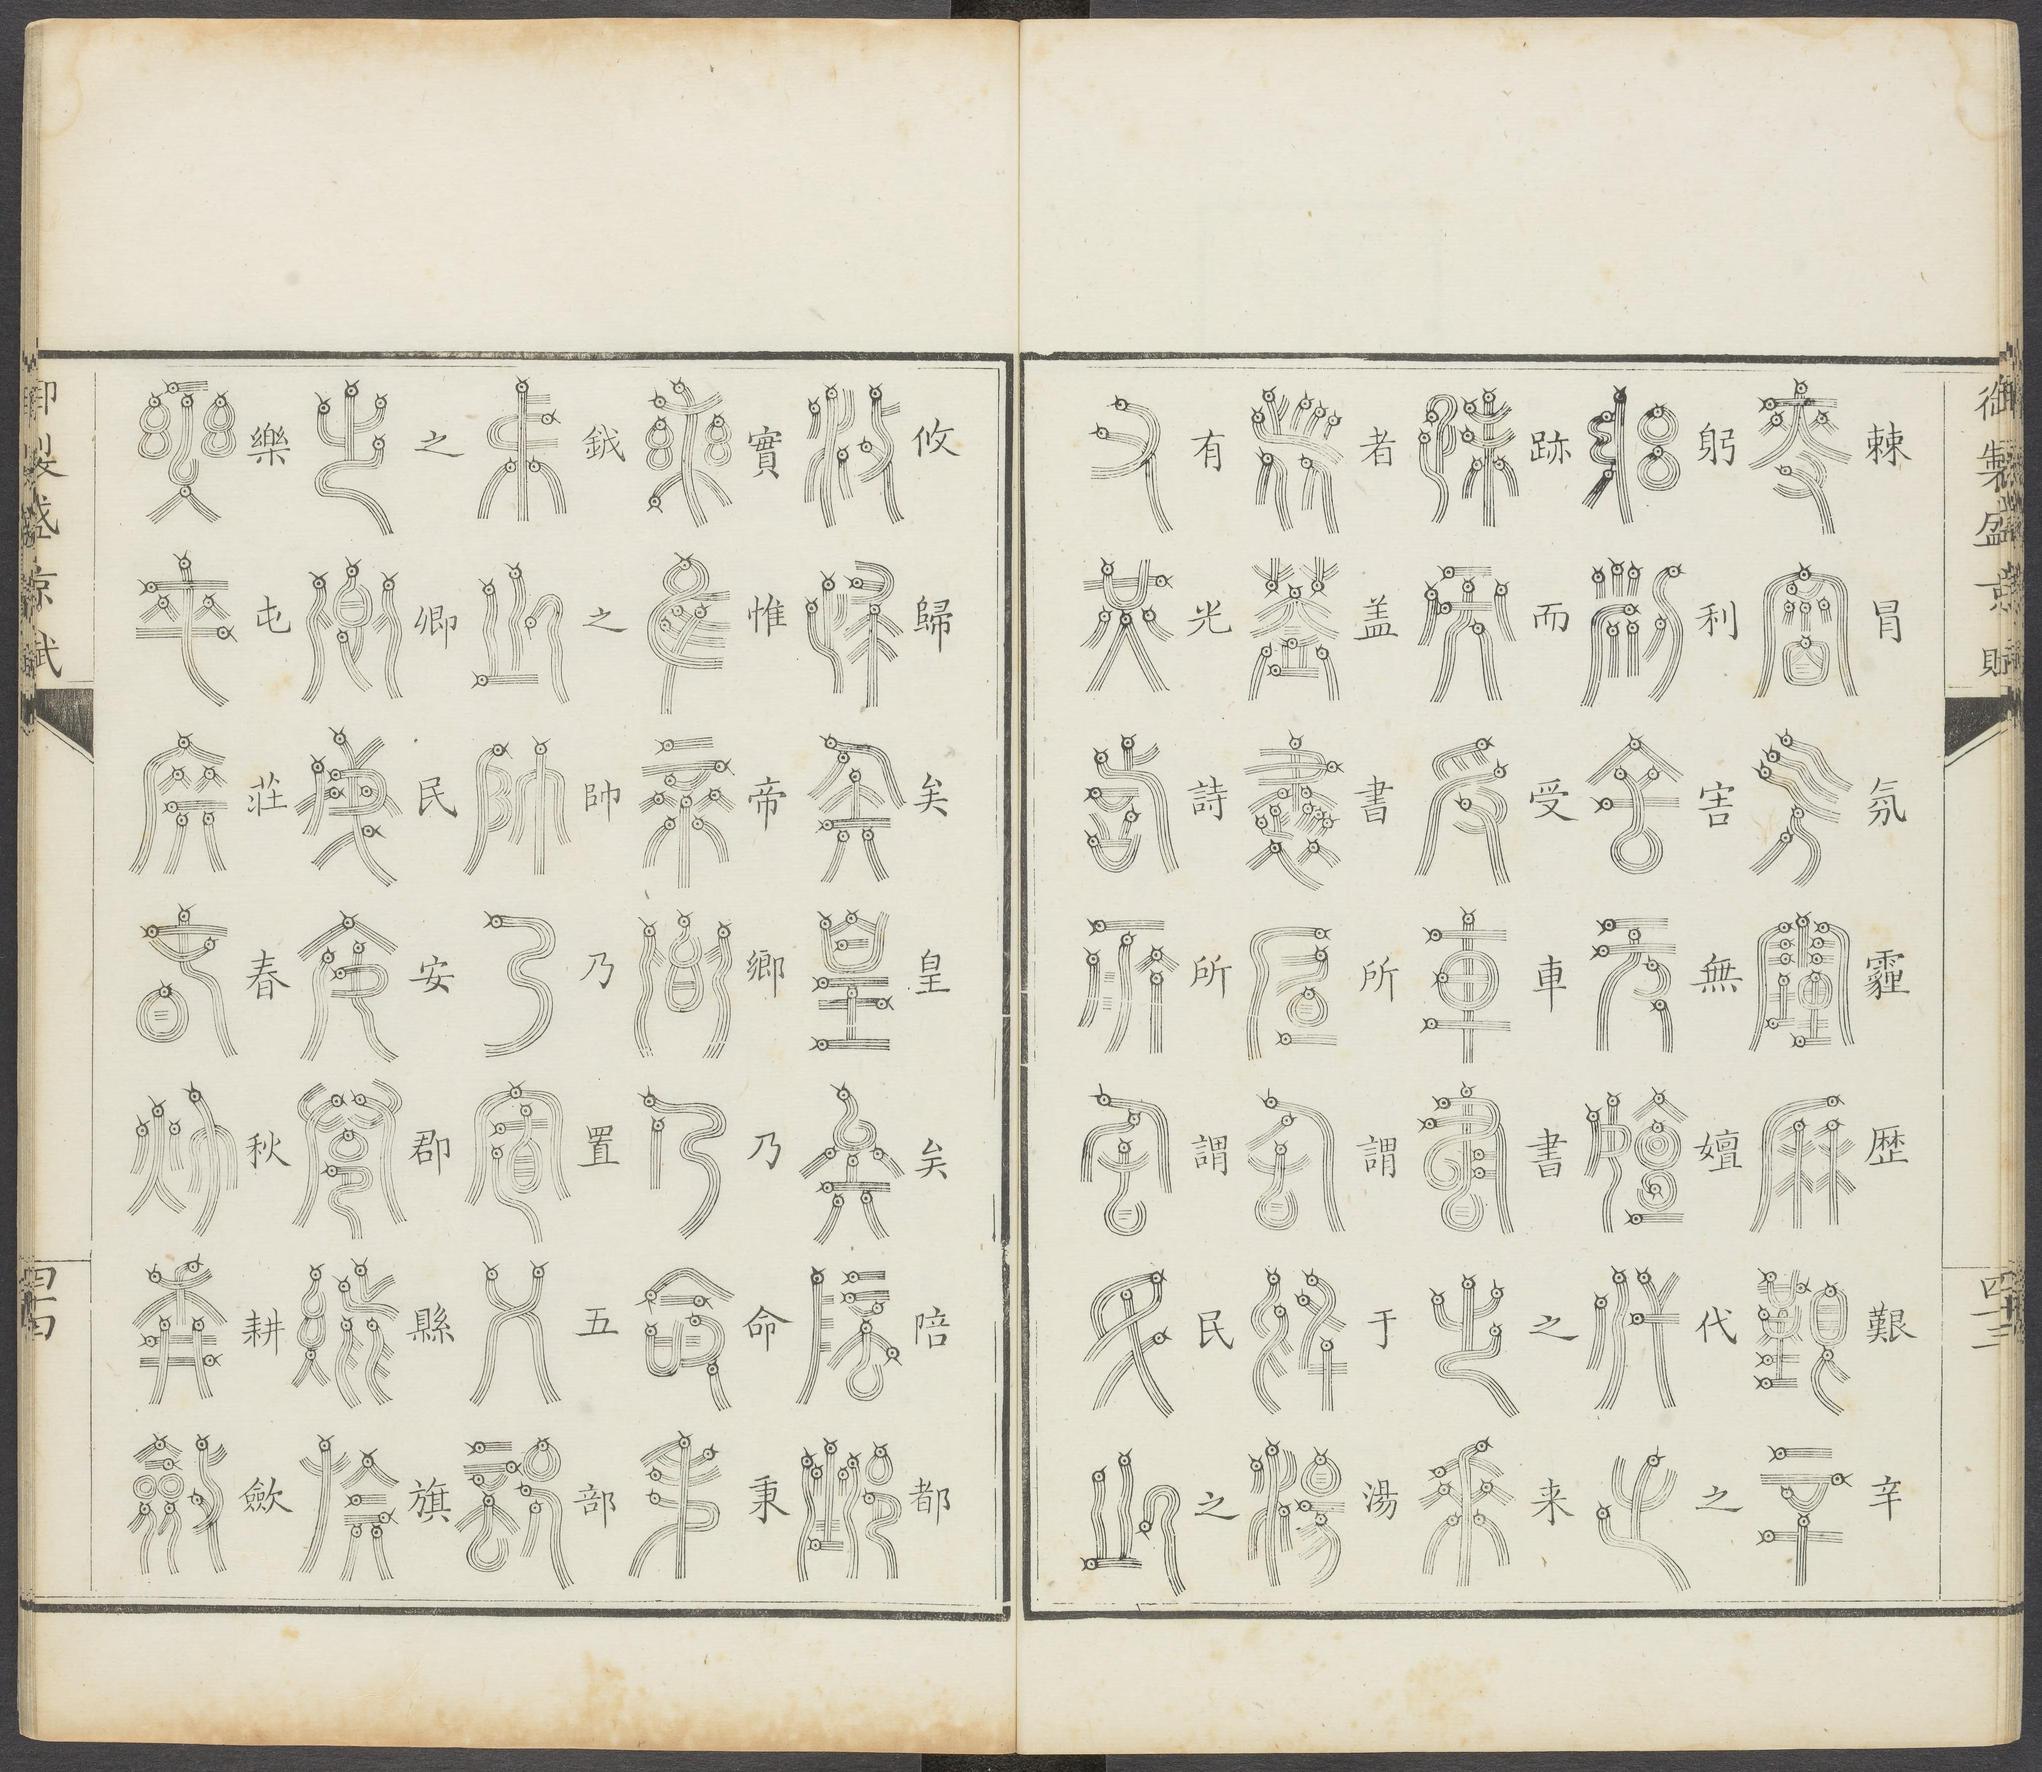 御製盛京賦
四十三
棘冒氛霾歴艱辛
躬利害無嬗代之
跡而受車書之来
者盖書所謂于湯
有光詩所謂民之
攸歸矣皇矣陪都
實惟帝鄉乃命秉
鉞之帥乃置五部
之卿民安郡縣旗
樂屯莊春秋耕歛
御製盛京賦
四十四